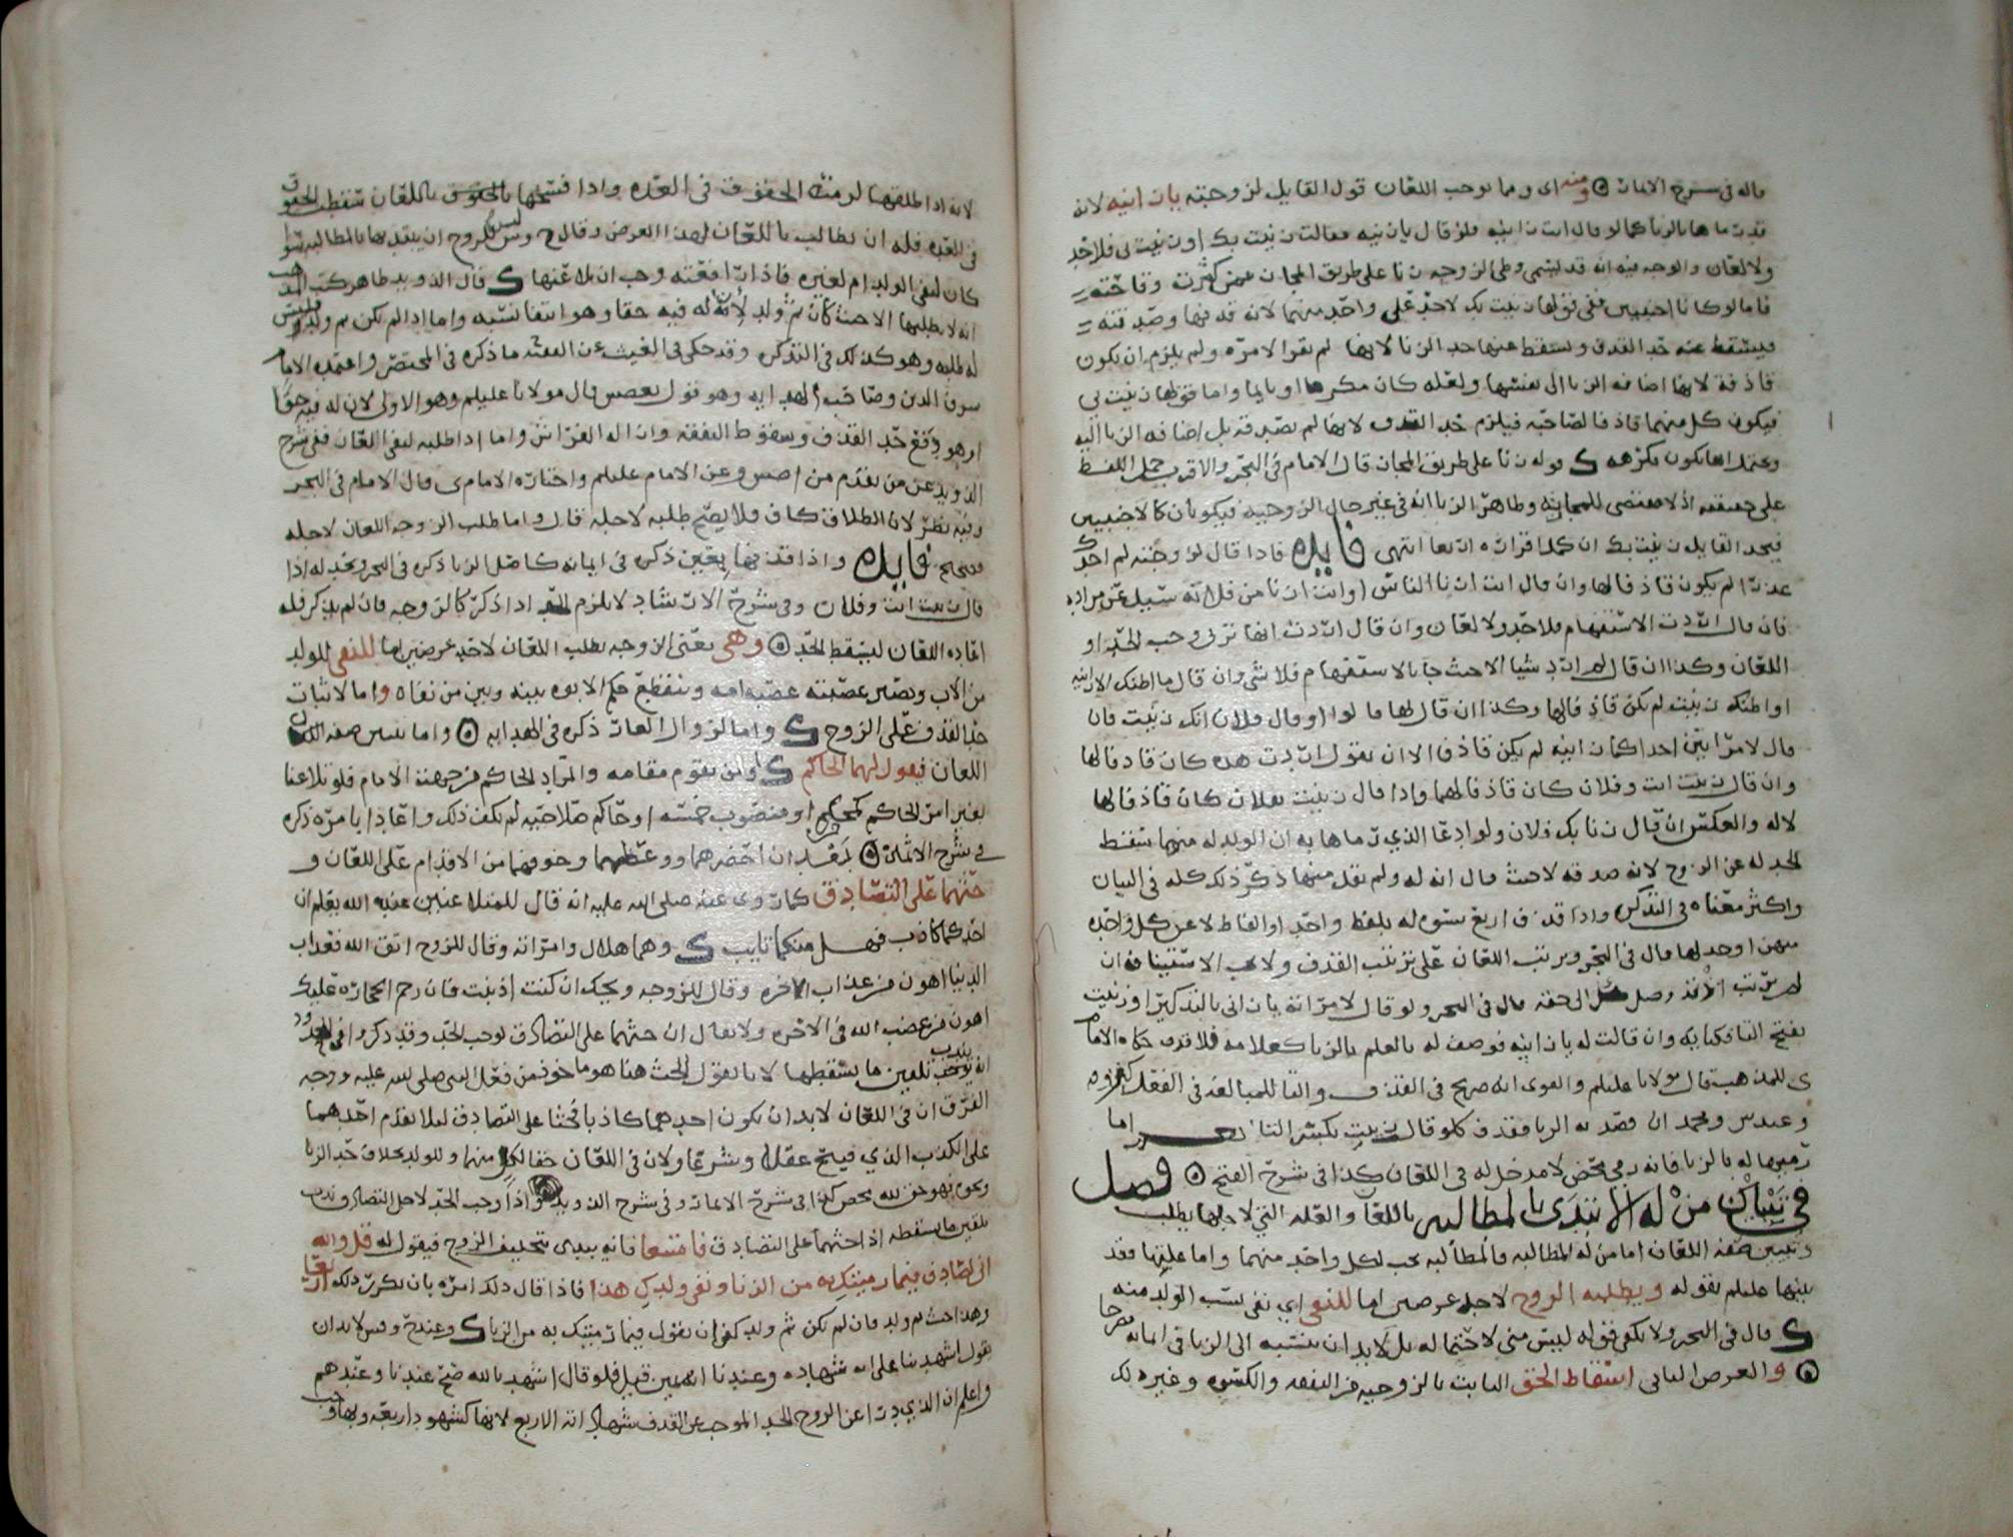 قاله في شرح الاثمار ومنه اى ومما يوجب اللعان قول القايل لزوجته يا زانيه لانه
قد رماها بالزنا كما لو قال انت زانيه فلو قال يا زانيه فقالت زنيت بك او زنيت بى فلا حد
ولا لعان والوجه فيه انه قد يسمى وطى الزوجه زنا على طريق المجاز
فاما لو كانا اجنبيين ففى قولها زنيت بك لا حد على واحد منهما لانه قذفها وصدقته
فيسقط عنه حد القذف ويسقط عنها حد الزنا لانها لم تقر الا مره ولم يلزم ان يكون
قاذفة لانها اضافه الزنا الى نفسها ولعله كان مكرها او نايما واما قولها زنيت بي
فيكون كل منهما قاذفا لصاحبه فيلزم حد القذف لانها لم تصدقه بل اضافه الزنا اليه
قوله زنا على طريق المجاز قال الامام في البحر والاقرب حمل اللفظ
على حقيقته اذ لا مقتضى للمجازيه وظاهر الزنا انه في غير حال الزوجيه فيكونان كالاجنبيين
فيحد القايل زنيت بك ان كملا اقراره اربعا انتهى فايده فاذا قال لزوجته لم اجدك
عذرا لم يكون قاذفا لها وان قال انت ازنا الناس او انت ازنا من فلانه سيل عن مراده
فان قال اردت الاستفهام فلا حد ولا لعان وان قال اردت انها تزنى وجب الحد او
اللعان وكذا ان قال لم ارد شيا الا حيث جا بالاستفهام فلا شي وان قال ما اظنك الا زانيه
او اظنك زنيت لم يكن قاذفا لها وكذا ان قال لها ما لوا او قال فلان انك زنيت فان
قال لامراتين احداكما زانيه لم يكن قاذفا الا ان يقول اردت هذه كان قاذفا لها
وان قال زنيت انت وفلان كان قاذفا لهما واذا قال زنيت بفلان كان قاذفا لها
لا له والعكس ان قال زنا بك فلان ولو ادعا الذي رماها به ان الولد له منها سقط
الحد له عن الزوج لانه صدقه لا حيث قال انه له ولم يقل منها ذكر ذلك كله في البيان
واكثر معناه في التذكره واذا قذف اربع نسوه له بلفظ واحد او الفاظ لاعن كل واحده
منهن اوحد لها قال في البحر ويرتب اللعان على ترتيب القذف ولا يجب الاستينا فه ان
لم يرتب اذ قد وصل كل الى حقه قال في البحر ولو قال لامراته يا زانى بالتذكير او زنيت
بفتح التا فكنايه وان قالت له يا زانيه فوصف له بالعلم بالزنا كعلامه فلا قذف حكاه الامام
ى للمذهب قال مولانا عليلم والقوى انه صريح في القذف والتا للمبالغه في الفعل
وعند س ومحمد ان قصد به الزنا فقذف كلو قال زنيت بكسر التا اما
رميها له بالزنا فانه رمي محض لا مدخل له في اللعان كذا في شرح الفتح فصل
في تبيان من له الابتدى بالمطالبه باللعان والعله التي لاجلها يطلب
وتبيين صفه اللعان اما من له المطالبه فالمطالبه تجب لكل واحد منهما واما عليها فقد
بينها عليلم بقوله ويطلبه الزوج لاجل غرضين اما للنفى اي نفى نسب الولد منه
ك قال في البحر ولا يكفى قوله ليس منى لاحتماله بل لا بد ان ينسبه الى الزنا في ايمانه
والغرض الثانى اسقاط الحق الثابت بالزوجيه من النفقه والكسوه وغير ذلك
لانه اذا طلقها لزمته الحقوق في العده واذا فسخها باللعان سقطت الحقوق
في العده فله ان يطالب باللعان لهذا الغرض وقال ح وش ليس للزوج ان يبتديها بالمطالبه سوا
كان لنفى الولد ام لغيره فاذا رافعته وجب ان يلاعنها ك قال الذويد ظاهر كتب المذهب
انه لا يطلبها الا حيث كان ثم ولد لانه له فيه حقا وهو انتفا نسبه واما اذا لم يكن ثم ولد فليس
له طلبه وهو كذلك في التذكره وقد حكى في الغيث عن الفقيه ما ذكره في المختصر واعتمده الامام
شرف الدين وصاحب الهدايه وهو قول بعض قال مولانا عليلم وهو الاولى لان له فيه حقا
وهو رفع حد القذف وسقوط النفقه وازاله الفراش واما اذا طلبه لنفى اللعان ففى شرح
الذويد عن من تقدم من اصش وعن الامام عليلم واختاره الامام ى قال الامام في البحر
وفيه نظر لان الطلاق كاف فلا يصح طلبه لاجله قال واما طلب الزوجه اللعان لاجله
فيصح فايده واذا قذفها بمعين ذكره في ايمانه كاصل الزنا ذكره في البحر ويحد له اذا
قال زنيت انت وفلان وفي شرح الارشاد لا يلزم الحد اذا ذكر كالزوجه فان لم يذكر فله
اعاده اللعان ليسقط الحد وهى يعنى الزوجه تطلب اللعان لاحد غرضين اما للنفى للولد
من الاب وتصير عصبته عصبه امه وينقطع حكم الابوه بينه وبين من نفاه واما لاثبات
حد القذف على الزوج ك واما لزوال العار ذكره في الهدايه واما تبيين صفه
اللعان فيقول لهما الحاكم ك او من يقوم مقامه والمراد الحاكم من جهة الامام فلو تلاعنا
بغير امر الحاكم كمحكم او منصوب خمسه او حاكم صلاحيه لم يكف ذلك واعادا بامره ذكره
في شرح الاثمار بعد ان احضرهما ووعظهما وخوفهما من الاقدام على اللعان و
حثهما على التصادق كما روى عنه صلى الله عليه انه قال للمتلاعنين عنده الله يعلم ان
احدكما كاذب فهل منكما تايب ك وهما هلال وامراته وقال للزوج اتق الله فعذاب
الدنيا اهون من عذاب الاخره وقال للزوجه ويحك ان كنت اذنبت فان رجم الحجاره عليك
اهون من غضب الله في الاخره ولا يقال ان حثهما على التصادق يوجب الحد وقد ذكروا في الحدود
انه يندب تلقين ما يسقطها لانا نقول الحث هنا هو ماخوذ من فعل النبى صلى الله عليه ووجه
الفرق ان في اللعان لا بد ان يكون احدهما كاذبا فحثا على التصادق ليلا يقدم احدهما
على الكذب الذي قبيح عقلا وشرعا ولان في اللعان حقا لكل منهما وللولد بخلاف حد الزنا
ونحوه فهو حق لله محض كذا في شرح الاثمار وفي شرح الذويد واذا وجب الحد لاجل التصادق ندب
تلقين ما يسقطه اذا حثهما على التصادق فامتنعا فانه يبدى بتحليف الزوج فيقول له قل والله
انى لصادق فيما رميتك به من الزنا ونفى ولدك هذا فاذا قال ذلك امره بان يكرر ذلك اربعا
وهذا حيث ثم ولد فان لم يكن ثم ولد كفى ان يقول فيما رميتك به من الزنا ك وعند ح وش لا بد ان
يقول اشهد بنا على انه شهاده وعندنا انه يمين قيل فلو قال اشهد بالله صح عندنا وعندهم
واعلم ان الذي درا عن الزوج الحد الموجب عن القذف شهاداته الاربع لانها كشهود اربعه وبها وجب